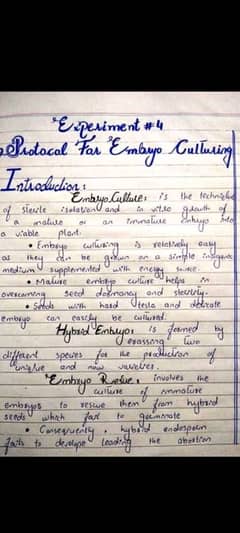 Experiment # 4
Protocol For Embryo Culturing
Introduction:
Embryo Culture: is the technique
of sterile isolation and in vitro growth of
a mature or an immature embryo into
a viable plant.
• Embryo culturing is relatively easy
as they can be grown on a simple inorganic
medium supplemented with energy source.
• Mature embryo culture helps in
overcoming seed dormancy and sterility.
• Seeds with hard testa and delicate
embryo can easily be cultured.
Hybrid Embryo: is formed by
crossing two
different species for the production of
unique and new varieties.
Embryo Rescue: involves the
culture of immature
embryos to rescue them from hybrid
seeds which fail to germinate
• Consequently, hybrid endosperm
fails to develope leading the abortion